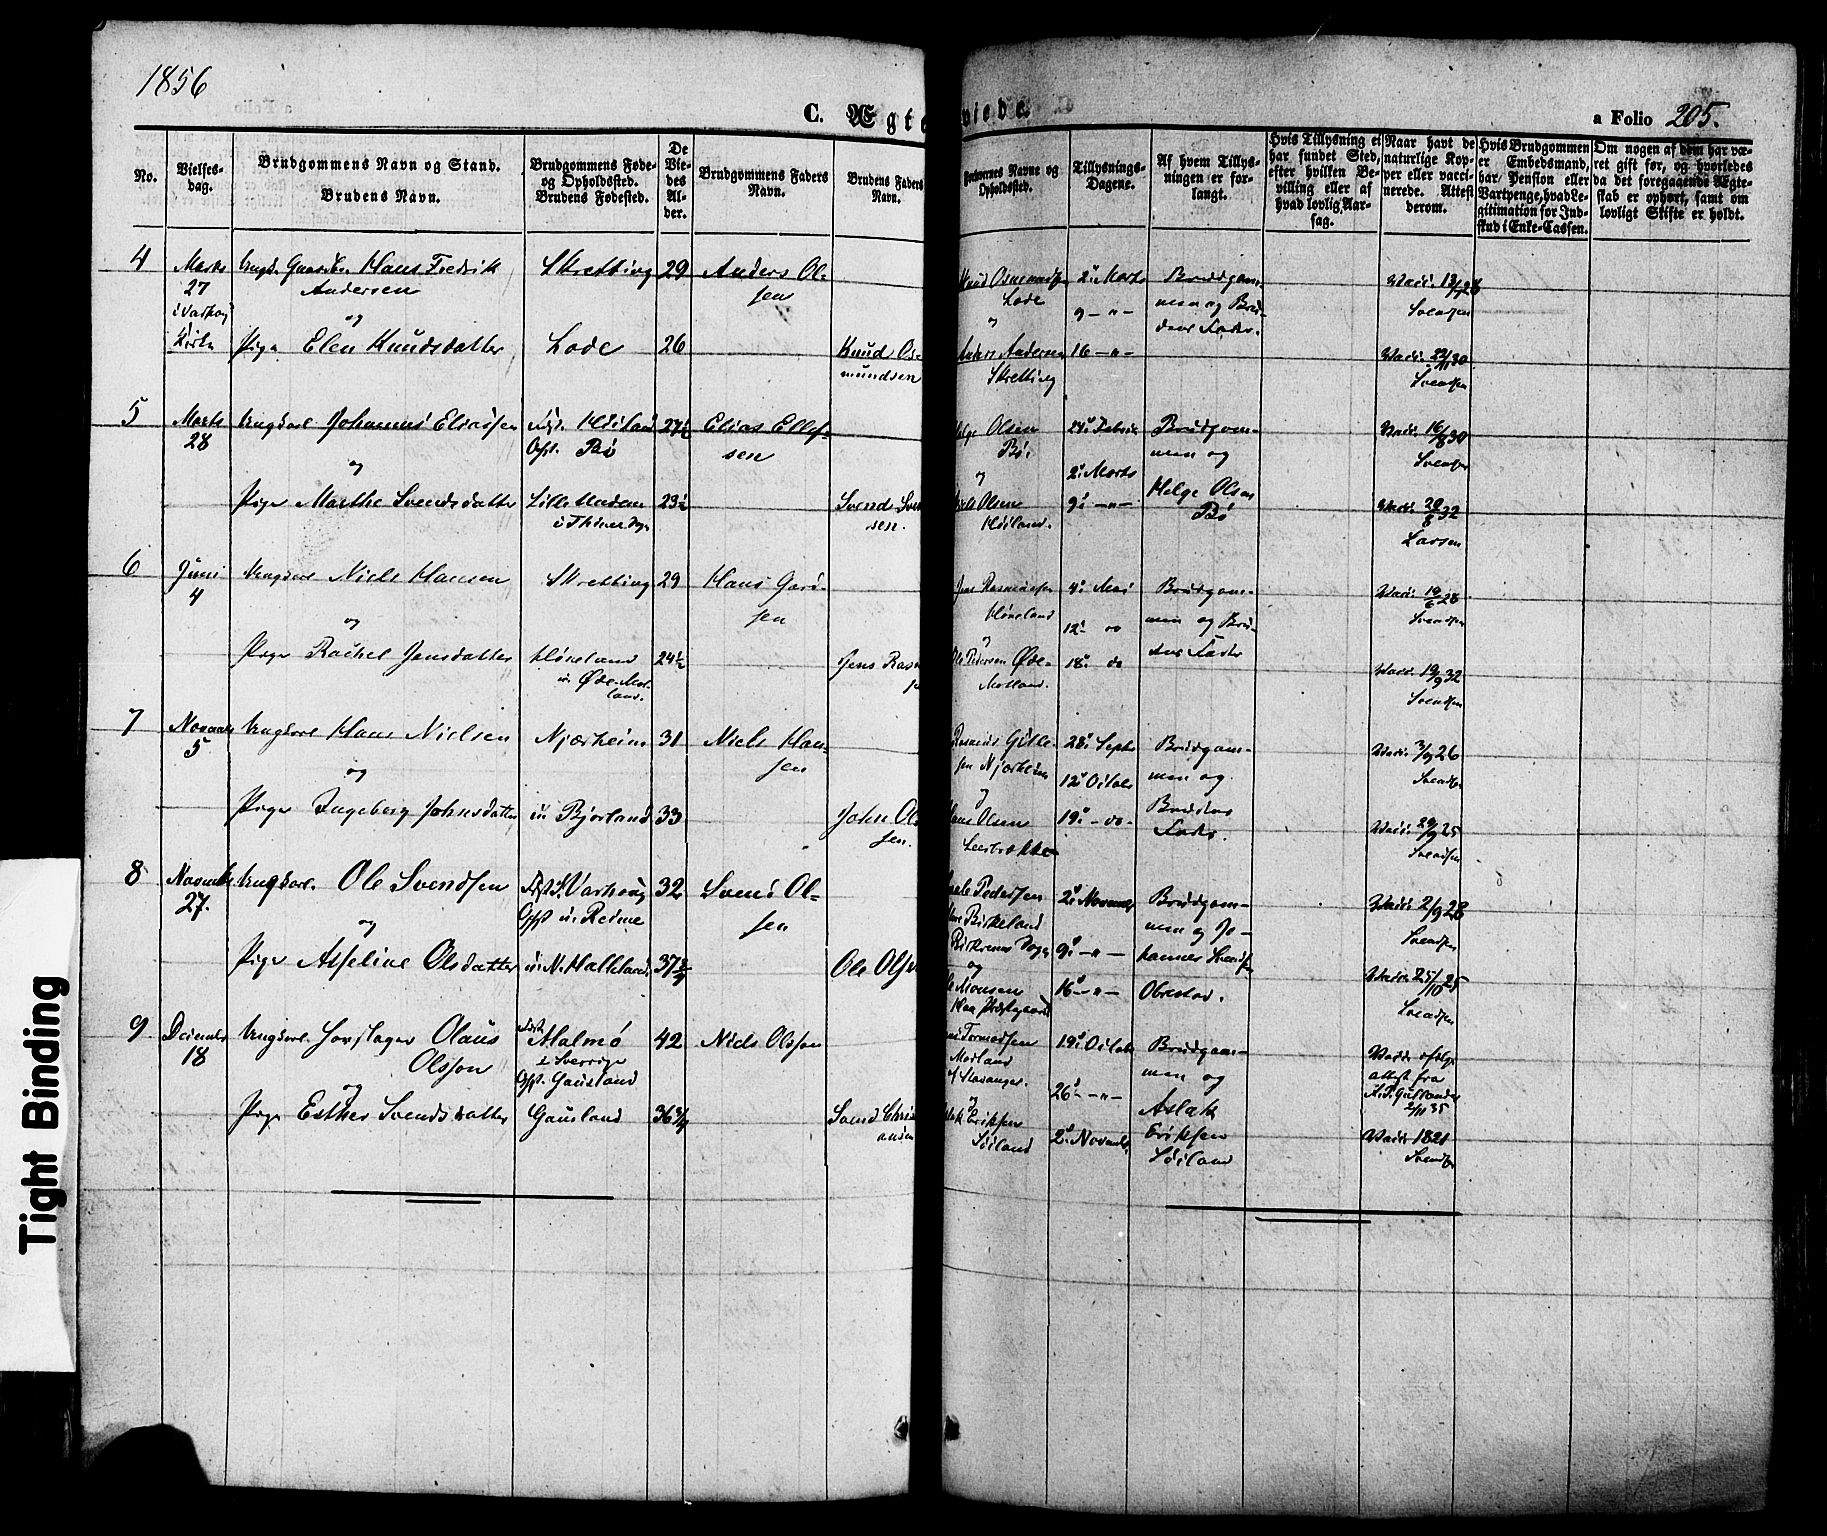 1856
C. Ægteviede
a Folio 205.
No.
Vielses-
dag.
Brudgommens Navn og Stand.
Brudens Navn.
Brudgommens Føde-
og Opholdssted.
Brudens Fødested.
De
Vie-
des
Al-
der.
Brudgommens Faders
Navn.
Brudens Faders
Navn.
Forlovernes Navne og
Opholdssted.
Tillysnings-
Dagene.
Af hvem Tillys-
ningen er for-
langt.
Hvis Tillysning ei
har fundet Sted,
efter hvilken Be-
villing eller af
hvad lovlig Aar-
sag.
Naar havt de
naturlige Kop-
per eller vacci-
nerede. Attest
derom.
Hvis Brudgommen
er Embedsmand,
har Pension eller
Vartpenge, hvad Le-
gitimation for Ind-
skud i Enke-Cassen.
Om nogen af dem har væ-
ret gift før, og hvorledes
da det foregaaende Ægte-
skab er ophørt, samt om
lovligt Skifte er holdt.
4
Marts
27
i Varhoug
Kirke
Hans Fredrik
Andersen
og
Pige Elen Knudsdatter
Skretting
Lode
29
26
Anders Ol-
sen
Knud Os-
mundsen
Knud Osmundsen
Lode
og
Anders Andersen
Skretting
2 Marts
9 - " -
16 - " -
Brudgom-
men og Bru-
dens Fader.
Vacc. 13/9 28
Svendsen
Vacc. 22/11 30
Svendsen
5
Marts
28
Ungkarl Johannes Eliassen
og
Pige Marthe Svendsdatter
Fød. Høiland
Oph. Bø
Lille
27½
23½
Elias Ellef-
sen
Svend Svend
sen.
Helge Olsen
Bø.
og
Olsen
Høiland.
24 Februar
2 Marts
9 - " -
Brudgom-
men og
Helge Olsen
Bø
Vacc. 16/8 30
Svendsen
Vacc. 20/8 32
Larsen
6
Juni
4
Ungkarl Niels Hansen
og
Pige Rachel Jensdatter
Skretting
Høneland
Øde-Mot-
land.
29
24½
Hans
sen
Jens Rasm
Jens Rasmussen
Høneland
og
Ole Pedersen Øde-
Motland.
4 Mai
12 do
18 do
Brudgom-
men og Bru-
dens Fader
Vacc. 19/6 28
Svendsen
Vacc. 19/9 32
Svendsen
7
Novemb
5
Ungkarl Hans Nielsen
og
Pige Ingeborg Johnsdatter
Njærheim
Bjorland
31
33
Niels Han-
sen
John Ol
sen.
Rasmus
sen Njærheim
og
Hans Olsen
Leerbrække
28 Septr
12 Octobr
19 - do -
Brudgom-
men og
Brudens
Fader.
Vacc. 3/9 26
Svendsen
Vacc. 29/9 25
Svendsen
8
Novembr
27.
Ungkarl. Ole Svendsen
og
Pige Asseline Olsdatter
Fød. i Varhoug
Oph. Reime
N. Halleland
32
37¾
Svend Ol-
sen
Ole Olsen
Pedersen
Birkeland
og
Monsen
2 Novemb
9 - " -
16 - " -
Brudgom-
men og Jo-
hannes Svends
Obrestad.
Vacc. 2/9 28
Svendsen
Vacc. 25/10 25
Svendsen
9
December
18
Ungkarl Olaus
Olsson
og
Pige Esther Svendsdatter
Fød. Malmø
i Sverrige
Oph. Gausland
Gausland
42
36¾
Niels Olsson
Svend Christi
ansen
Tormodsen
Motland
Stavanger.
og
Aslak Eriksen
Søiland
19 Octobr
26 - " -
2 Novembr
Brudgom-
men og
Aslak
Eriksen
Søiland
Vacc. ifølge
attest fra
2/11 35
Vacc. 1821
Svendsen
Tight Binding